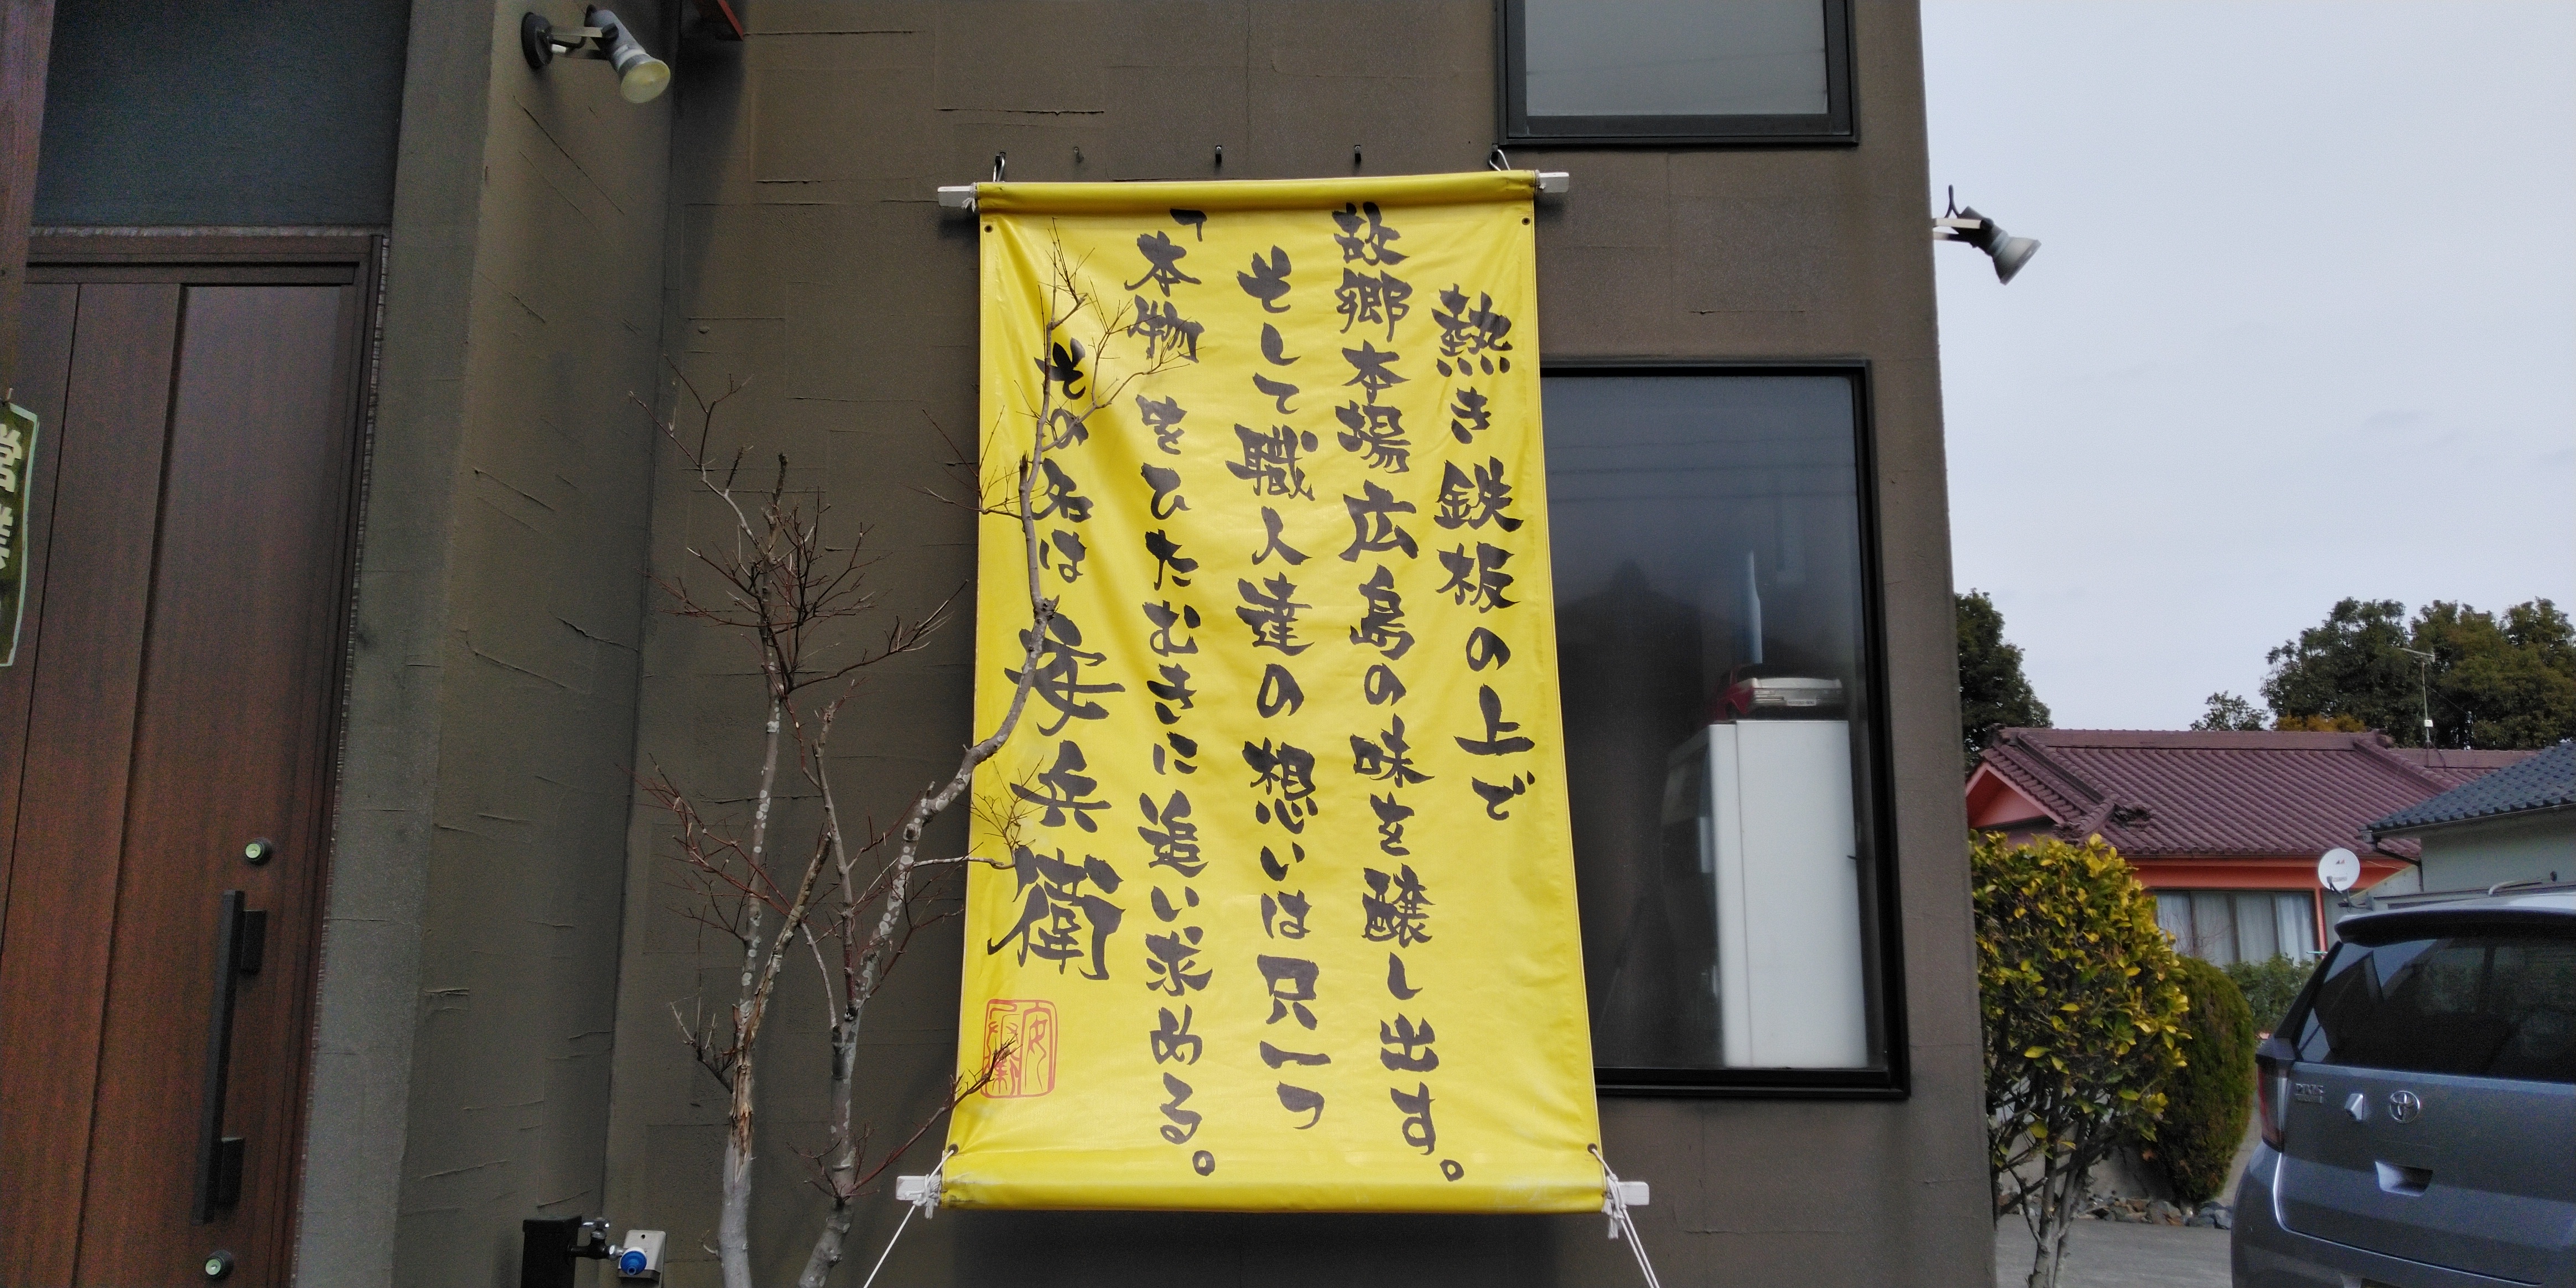 熱き鉄板の上で
故郷本場広島の味を醸し出す。
そして職人達の想いは只一つ
「本物」をひたむきに追い求める。
その名は安兵衛
営業